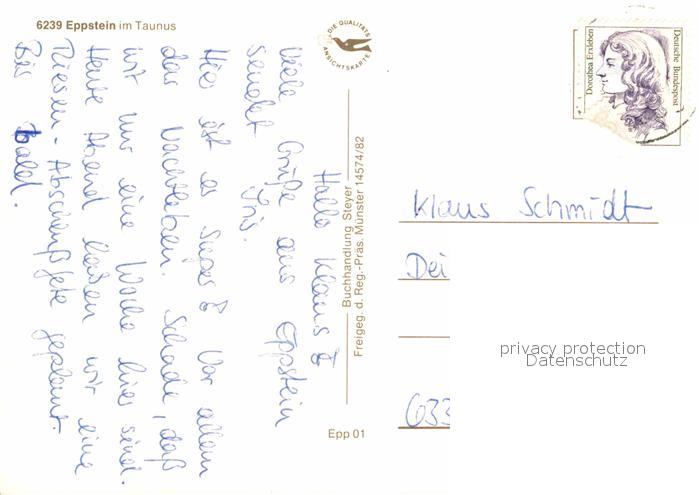 6239 Eppstein im Taunus
DIE QUALITÄTS
ANSICHTSKARTE
Hallo Klaus!
Viele Grüße aus Eppstein
sendet Iris.
Hier ist es super & vor allem
das Nachtleben. Schade, daß
wir nur eine Woche hier sind.
Heute Abend haben wir eine
Riesen-Abschlußfete geplant.
Bis bald.
Buchhandlung Steyer
Freigeg. d. Reg.-Präs. Münster 14574/82
Epp 01
Dorothea Erxleben
Deutsche Bundespost
Klaus Schmidt
Dei
633
privacy protection
Datenschutz